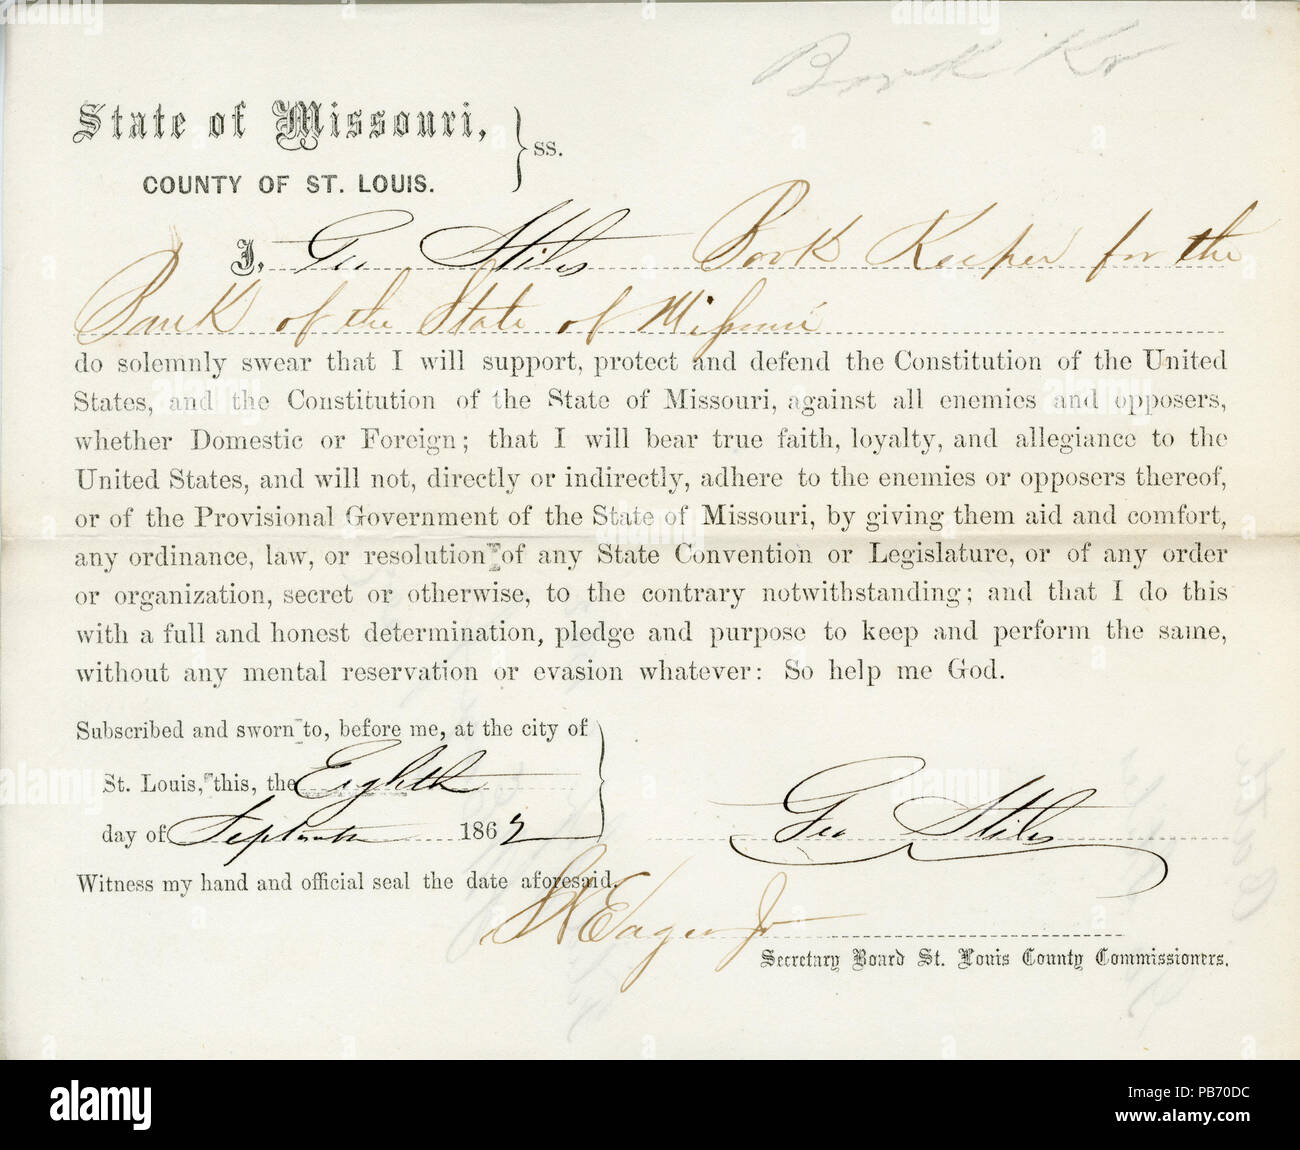 Book Kr
State of Missouri,
COUNTY OF ST. LOUIS. } ss.
I, Geo Stiles Book Keeper for the
Bank of the State of Missouri
do solemnly swear that I will support, protect and defend the Constitution of the United
States, and the Constitution of the State of Missouri, against all enemies and opposers,
whether Domestic or Foreign; that I will bear true faith, loyalty, and allegiance to the
United States, and will not, directly or indirectly, adhere to the enemies or opposers thereof,
or of the Provisional Government of the State of Missouri, by giving them aid and comfort,
any ordinance, law, or resolution of any State Convention or Legislature, or of any order
or organization, secret or otherwise, to the contrary notwithstanding; and that I do this
with a full and honest determination, pledge and purpose to keep and perform the same,
without any mental reservation or evasion whatever: So help me God.
Subscribed and sworn to, before me, at the city of
St. Louis, this, the Eighth
day of September 1862
Geo Stiles
Witness my hand and official seal the date aforesaid.
Eager Jr
Secretary Board St. Louis County Commissioners.
alamy
Image ID: PB70DC
www.alamy.com